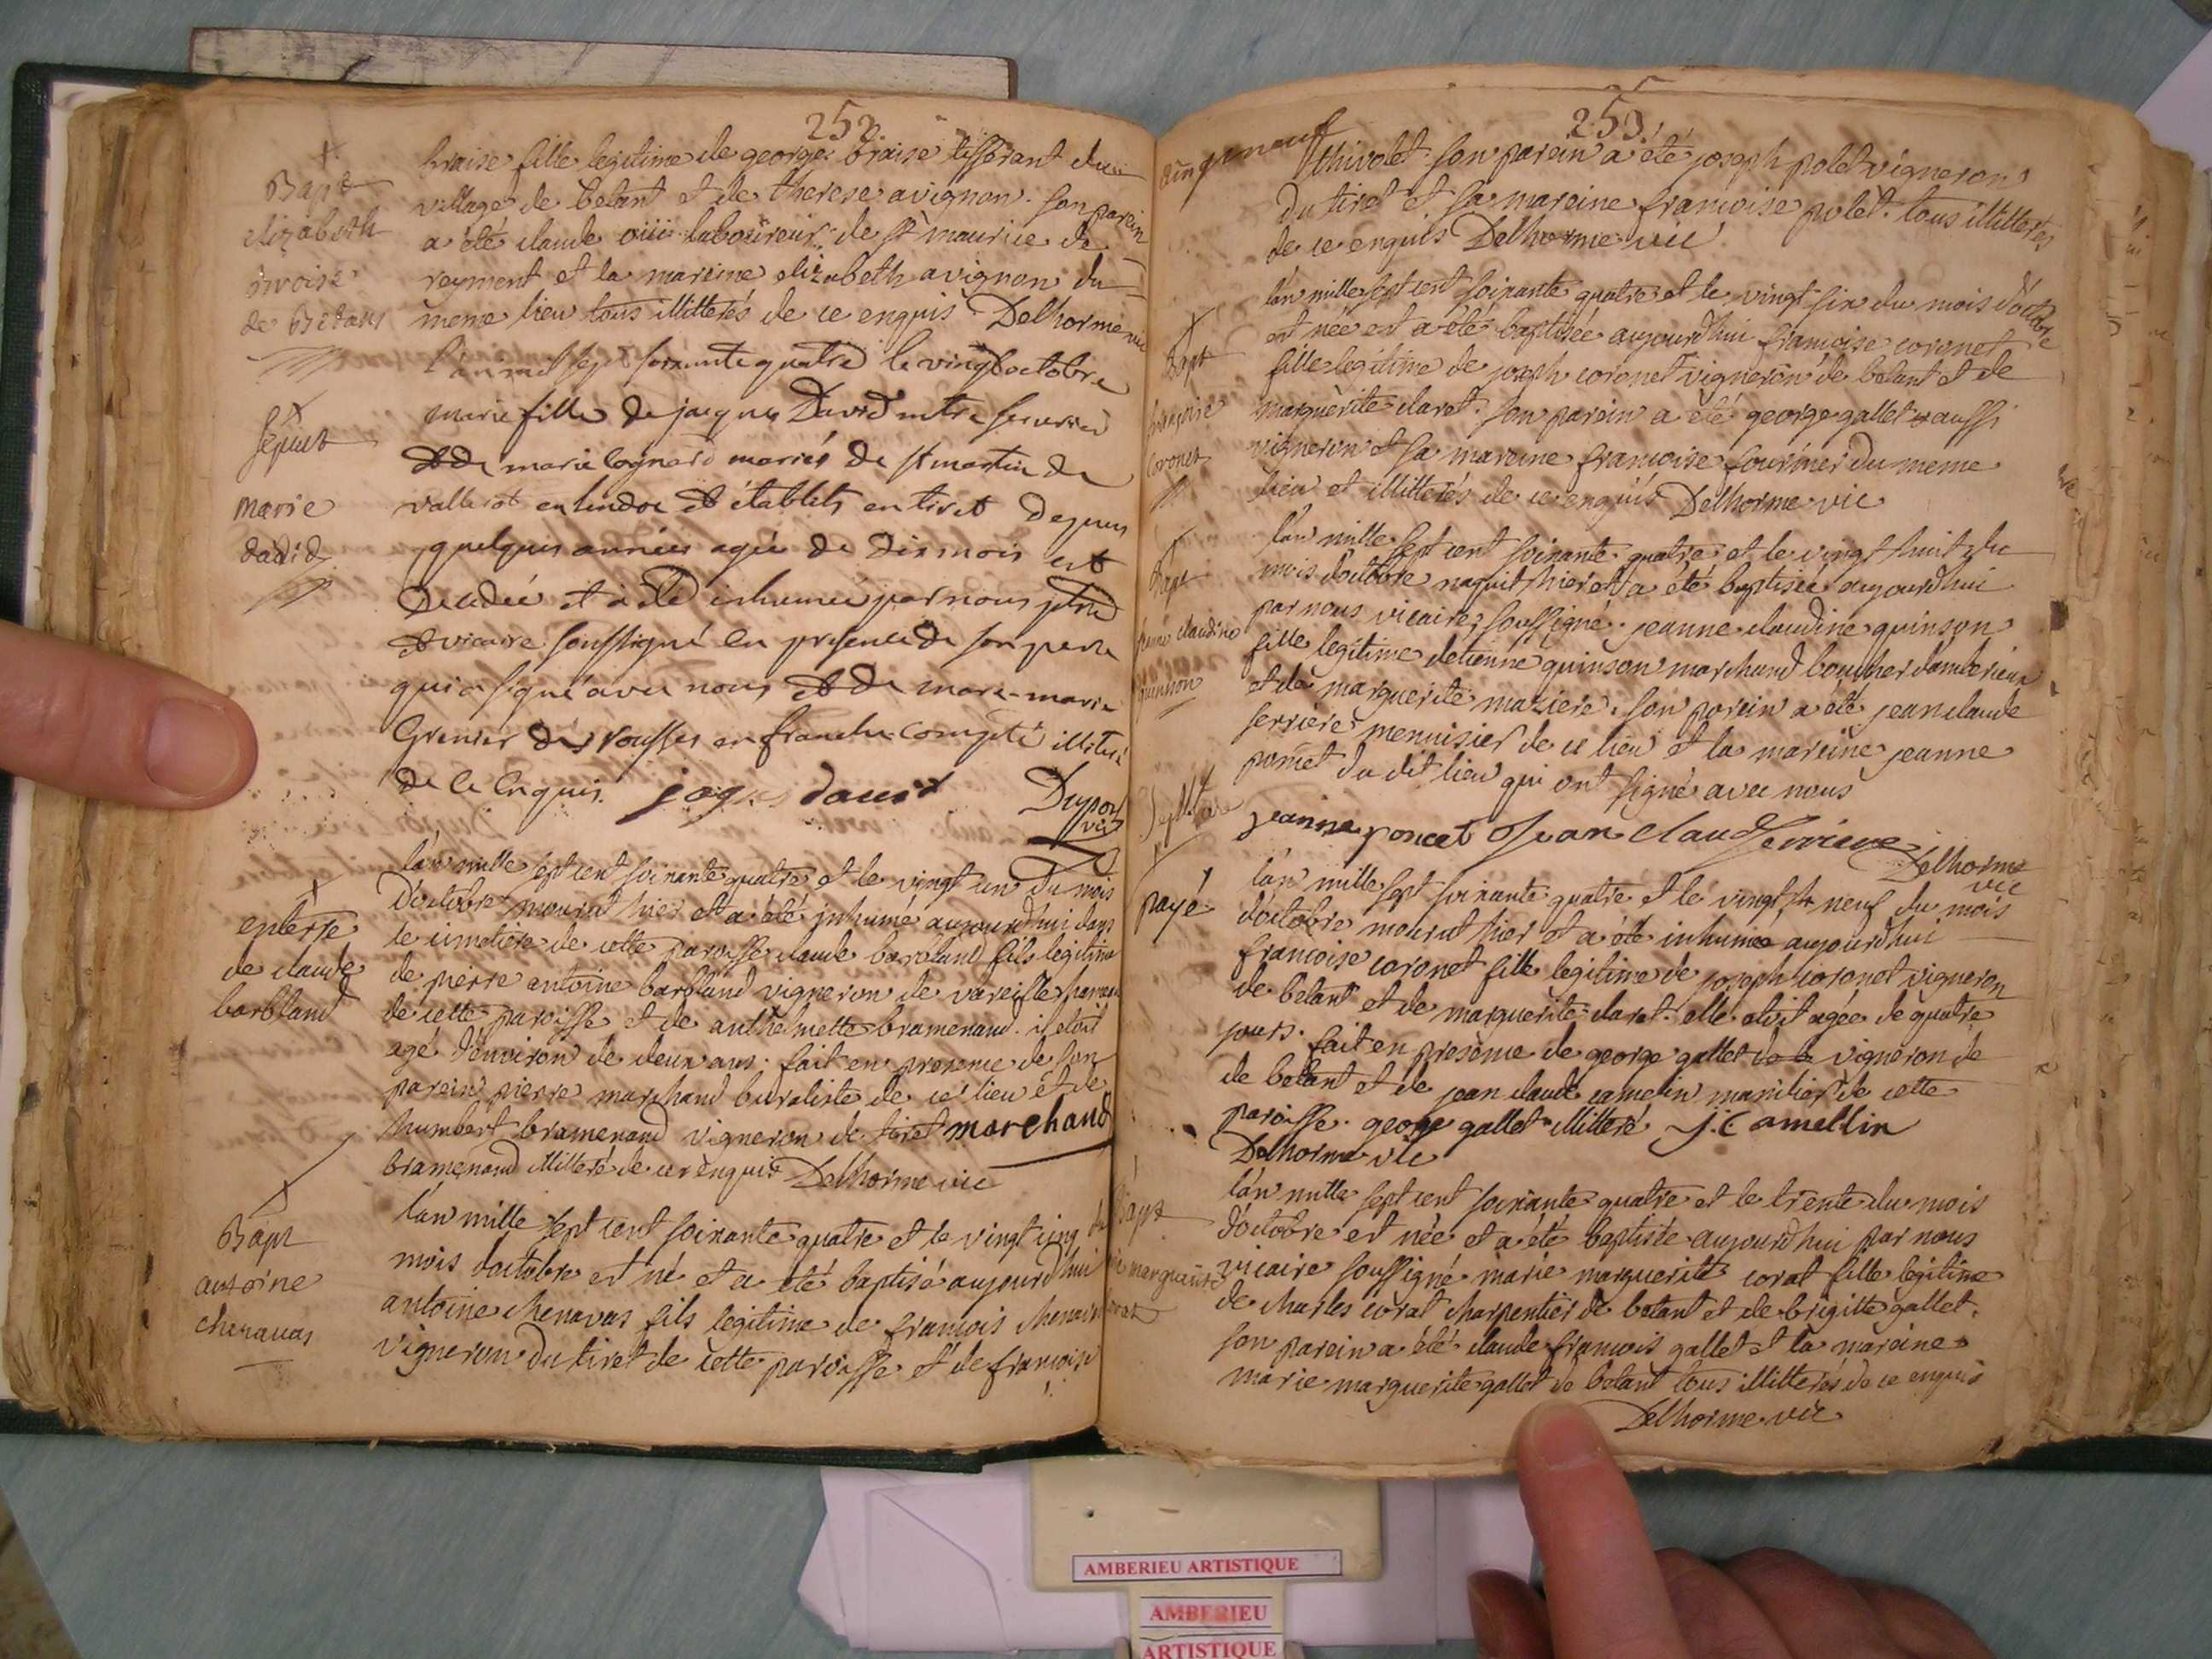 252.
Bapt
elizabeth
broise
de Betans
braise fille legitime de george braise tissérant du
village de betant et de therese avignon. son parein
a été claude laboureur de st maurice de
reyment et la mareine elizabeth avignon du
meme lieu tous illitterés de ce enquis Delhorme vic
Sepult
marie
david
l'an mil sept soixante quatre le vingt octobre
marie fille de jacques David
et de marie Cognard mariés de st martin de
et établits en tiret depuis
quelques années agée de dix mois est
Decedée et a été inhumée par nous ptre
et vicaire soussigné en presence de son pere
qui a signé avec nous et de marie
Grenier des rousses en franche compté illiteré
de ce Enquis. david Dupont
vic
enterre
de claude
barbland
l'an mille sept cent soixante quatre et le vingt un du mois
d'octobre mourut hier et a été inhumé aujourd'hui dans
le cimetiere de cette paroisse claude barbland fils legitime
de pierre antoine barbland vigneron de vareille hameau
de cette paroisse et de anthelmette bramenand. il etoit
agé d'environ de deux ans. fait en presence de son
parein pierre marchand buraliste de ce lieu et de
humbert bramenand vigneron de tiret marchand
bramenand illitteré de ce enquis Delhorme vic
Bapt
antoine
chenavas
l'an mille sept cent soixante quatre et le vingt cinq du
mois d'octobre est né et a été baptisé aujourd'hui
antoine chenavas fils legitime de francois chenavas
vigneron du tiret de cette paroisse et de francoise
253
thivolet. son parein a été joseph polet vigneron
du tiret et sa mareine francoise polet. tous illitterés
de ce enquis Delhorme vic
Bapt
francoise
Coronet
l'an mille sept cent soixante quatre et le vingt six du mois d'octobre
est née et a été baptisée aujourd'hui francoise coronet
fille legitime de joseph coronet vigneron de betant et de
marguerite claret. son parein a été george gallet aussi
vigneron et sa mareine francoise fournier du meme
lieu et illitterés de ce enquis Delhorme vic
Bapt
jeanne claudine
quinson
l'an mille sept cent soixante quatre et le vingt huit du
mois d'octobre naquit hier et a été baptisée aujourd'hui
par nous vicaire soussigné. jeanne claudine quinson
fille legitime detienne quinson marchand boucher d'amberieux
et de marguerite maziere. son parein a été jean claude
serriere menuisier de ce lieu et la mareine jeanne
poncet du dit lieu qui ont signé avec nous
jeanne poncet Jean Claude Serriere
Delhorme
vic
payé
l'an mille sept soixante quatre et le vingt neuf du mois
d'octobre mourut hier et a été inhumée aujourd'hui
francoise coronet fille legitime de joseph coronet vigneron
de betant et de marguerite claret. elle etoit agée de quatre
jours. fait en presence de george gallet vigneron de
de betant et de jean claude camelin marillier de cette
paroisse. george gallet illitteré J. C amellin
Delhorme vic
Bapt
marguerite
l'an mille sept cent soixante quatre et le trente du mois
d'octobre est née et a été baptisée aujourd'hui par nous
vicaire soussigné marie marguerite corat fille legitime
de charles corat charpentier de betant et de brigitte gallet.
son parein a été claude francois gallet et la mareine
marie marguerite gallet de betant tous illitterés de ce enquis
Delhorme vic
AMBERIEU ARTISTIQUE
AMBERIEU
ARTISTIQUE